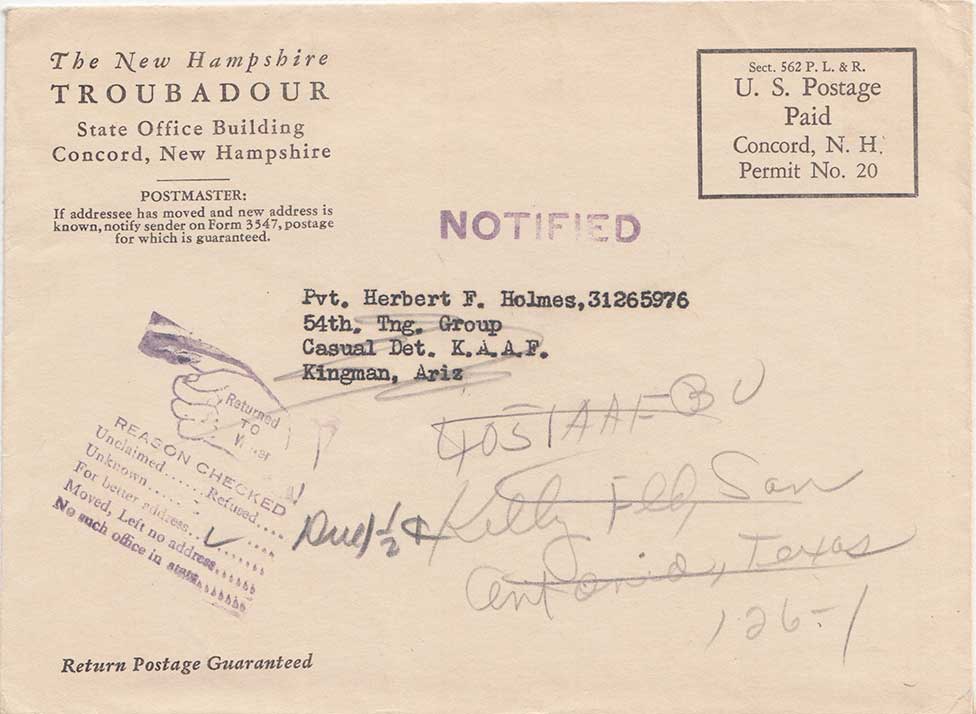 The New Hampshire
TROUBADOUR
State Office Building
Concord, New Hampshire
POSTMASTER:
If addressee has moved and new address is
known, notify sender on Form 3547, postage
for which is guaranteed.
Sect. 562 P. L. & R.
U. S. Postage
Paid
Concord, N. H.
Permit No. 20
NOTIFIED
Pvt. Herbert F. Holmes, 31265976
54th. Tng. Group
Casual Det. K.A.A.F.
Kingman, Ariz
4051 AAF BU
Kelly Fld, San
Antonio, Texas
126-1
Due 1/2
Returned
TO
REASON CHECKED
Unclaimed....... Refused....
Unknown.....
For better address...
Moved, Left no address......
No such office in state........
Return Postage Guaranteed